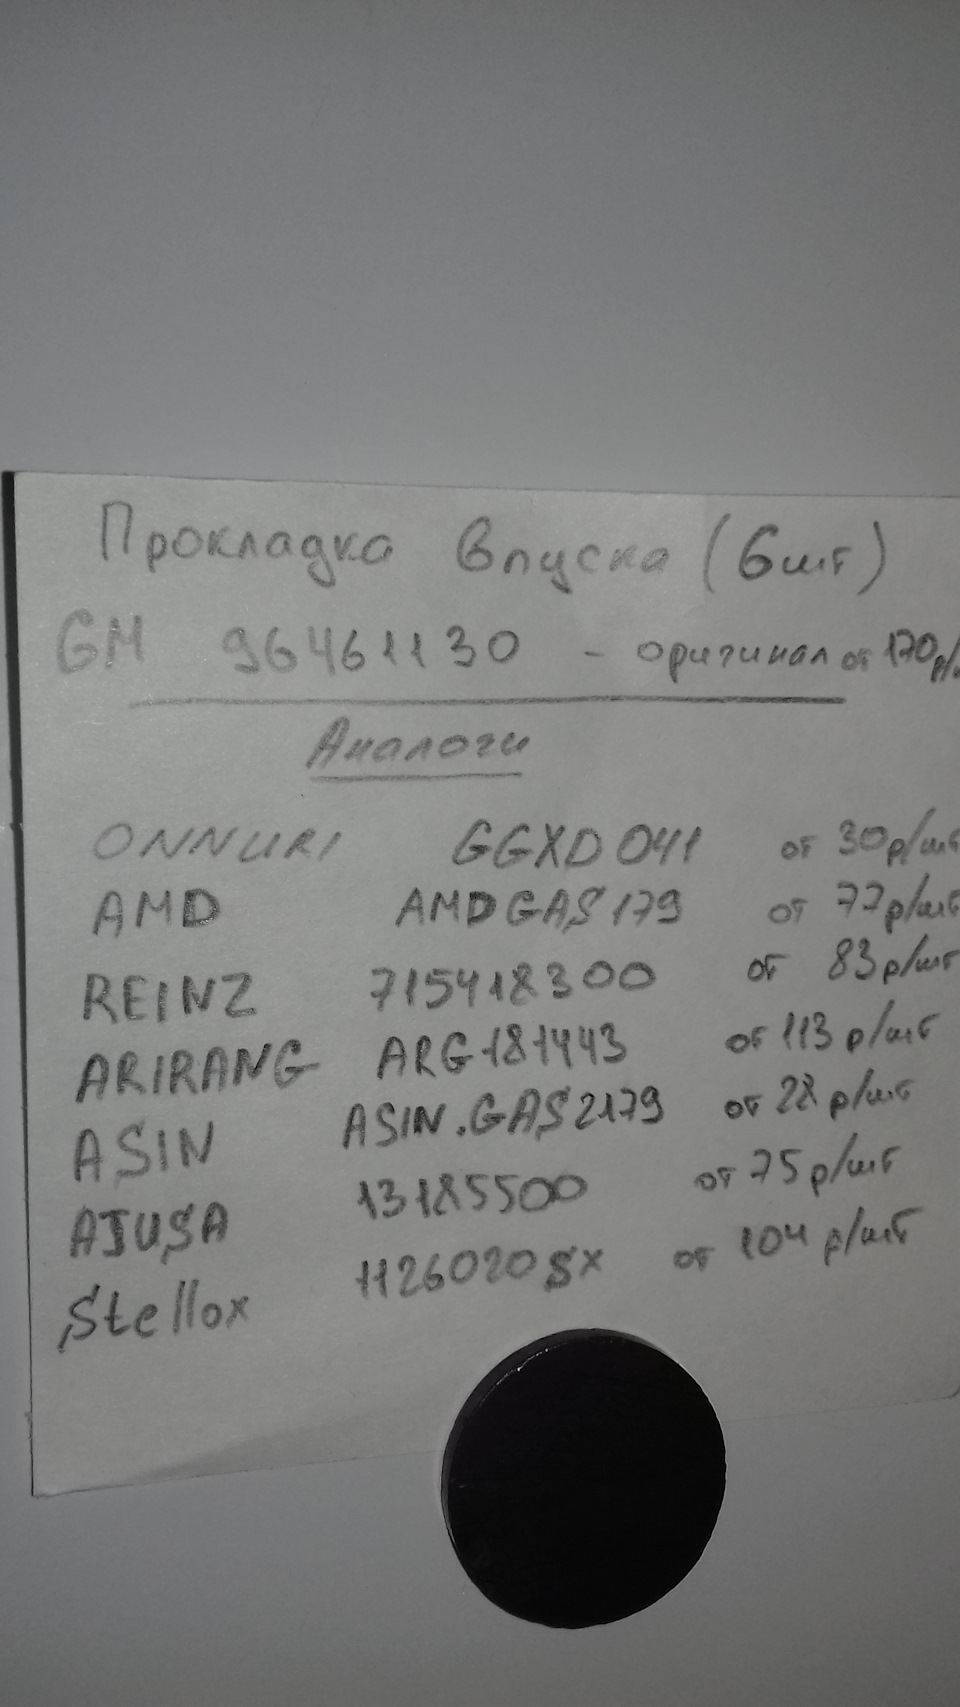 Прокладка впуска (6шт)
GM 96461130 - оригинал от 170р/
Аналоги
ONNURI GGXD041 от 30р/шт
AMD AMDGAS179 от 77р/шт
REINZ 715418300 от 83р/шт
ARIRANG ARG181443 от 113р/шт
ASIN ASIN.GAS2179 от 28р/шт
AJUSA 13185500 от 75р/шт
Stellox 1126020SX от 104р/шт